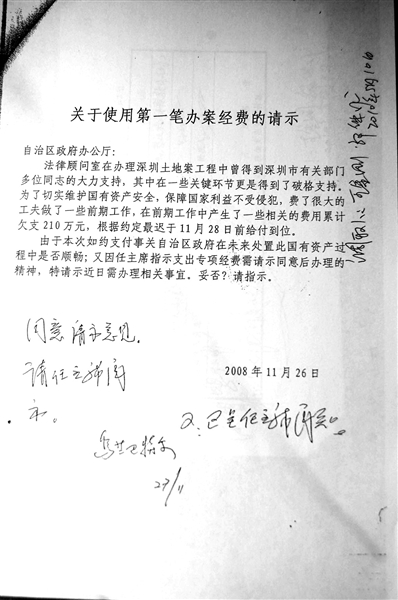 关于使用第一笔办案经费的请示
自治区政府办公厅：
法律顾问室在办理深圳土地案工程中曾得到深圳市有关部门
多位同志的大力支持，其中在一些关键环节更是得到了破格支持。
为了切实维护国有资产安全，保障国家利益不受侵犯，费了很大的
工夫做了一些前期工作，在前期工作中产生了一些相关的费用累计
欠支 210 万元，根据约定最迟于 11 月 28 日前给付到位。
由于本次如约支付事关自治区政府在未来处置此国有资产过
程中是否顺畅；又因任主席指示支出专项经费需请示同意后办理的
精神，特请示近日需办理相关事宜。妥否？请指示。
2008 年 11 月 26 日
同意请示意见。
请任主席阅
示。
乌兰巴特尔
27/11
已呈任主席阅